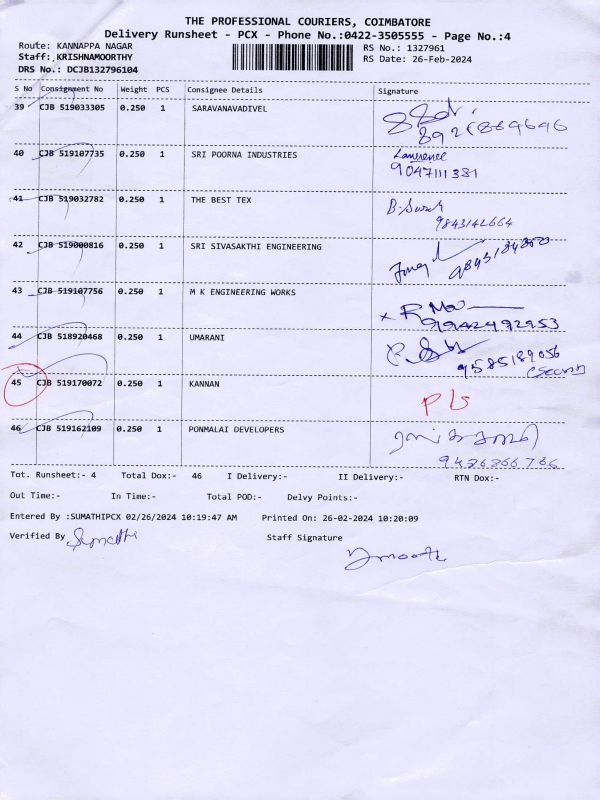 THE PROFESSIONAL COURIERS, COIMBATORE
Delivery Runsheet - PCX - Phone No.:0422-3505555 - Page No.:4
Route: KANNAPPA NAGAR RS No.: 1327961
Staff: KRISHNAMOORTHY RS Date: 26-Feb-2024
DRS No.: DCJB132796104
S No Consignment No Weight PCS Consignee Details Signature
39 CJB 519033305 0.250 1 SARAVANAVADIVEL
40 CJB 519107735 0.250 1 SRI POORNA INDUSTRIES Lawrence
9047111381
41 CJB 519032782 0.250 1 THE BEST TEX B. Suresh
9843142664
42 CJB 519000816 0.250 1 SRI SIVASAKTHI ENGINEERING
43 CJB 519107756 0.250 1 M K ENGINEERING WORKS
9942492953
44 CJB 518920468 0.250 1 UMARANI
9585189056
45 CJB 519170072 0.250 1 KANNAN
46 CJB 519162109 0.250 1 PONMALAI DEVELOPERS
Tot. Runsheet:- 4 Total Dox:- 46 I Delivery:- II Delivery:- RTN Dox:-
Out Time:- In Time:- Total POD:- Delvy Points:-
Entered By :SUMATHIPCX 02/26/2024 10:19:47 AM Printed On: 26-02-2024 10:20:09
Verified By Sumathi Staff Signature